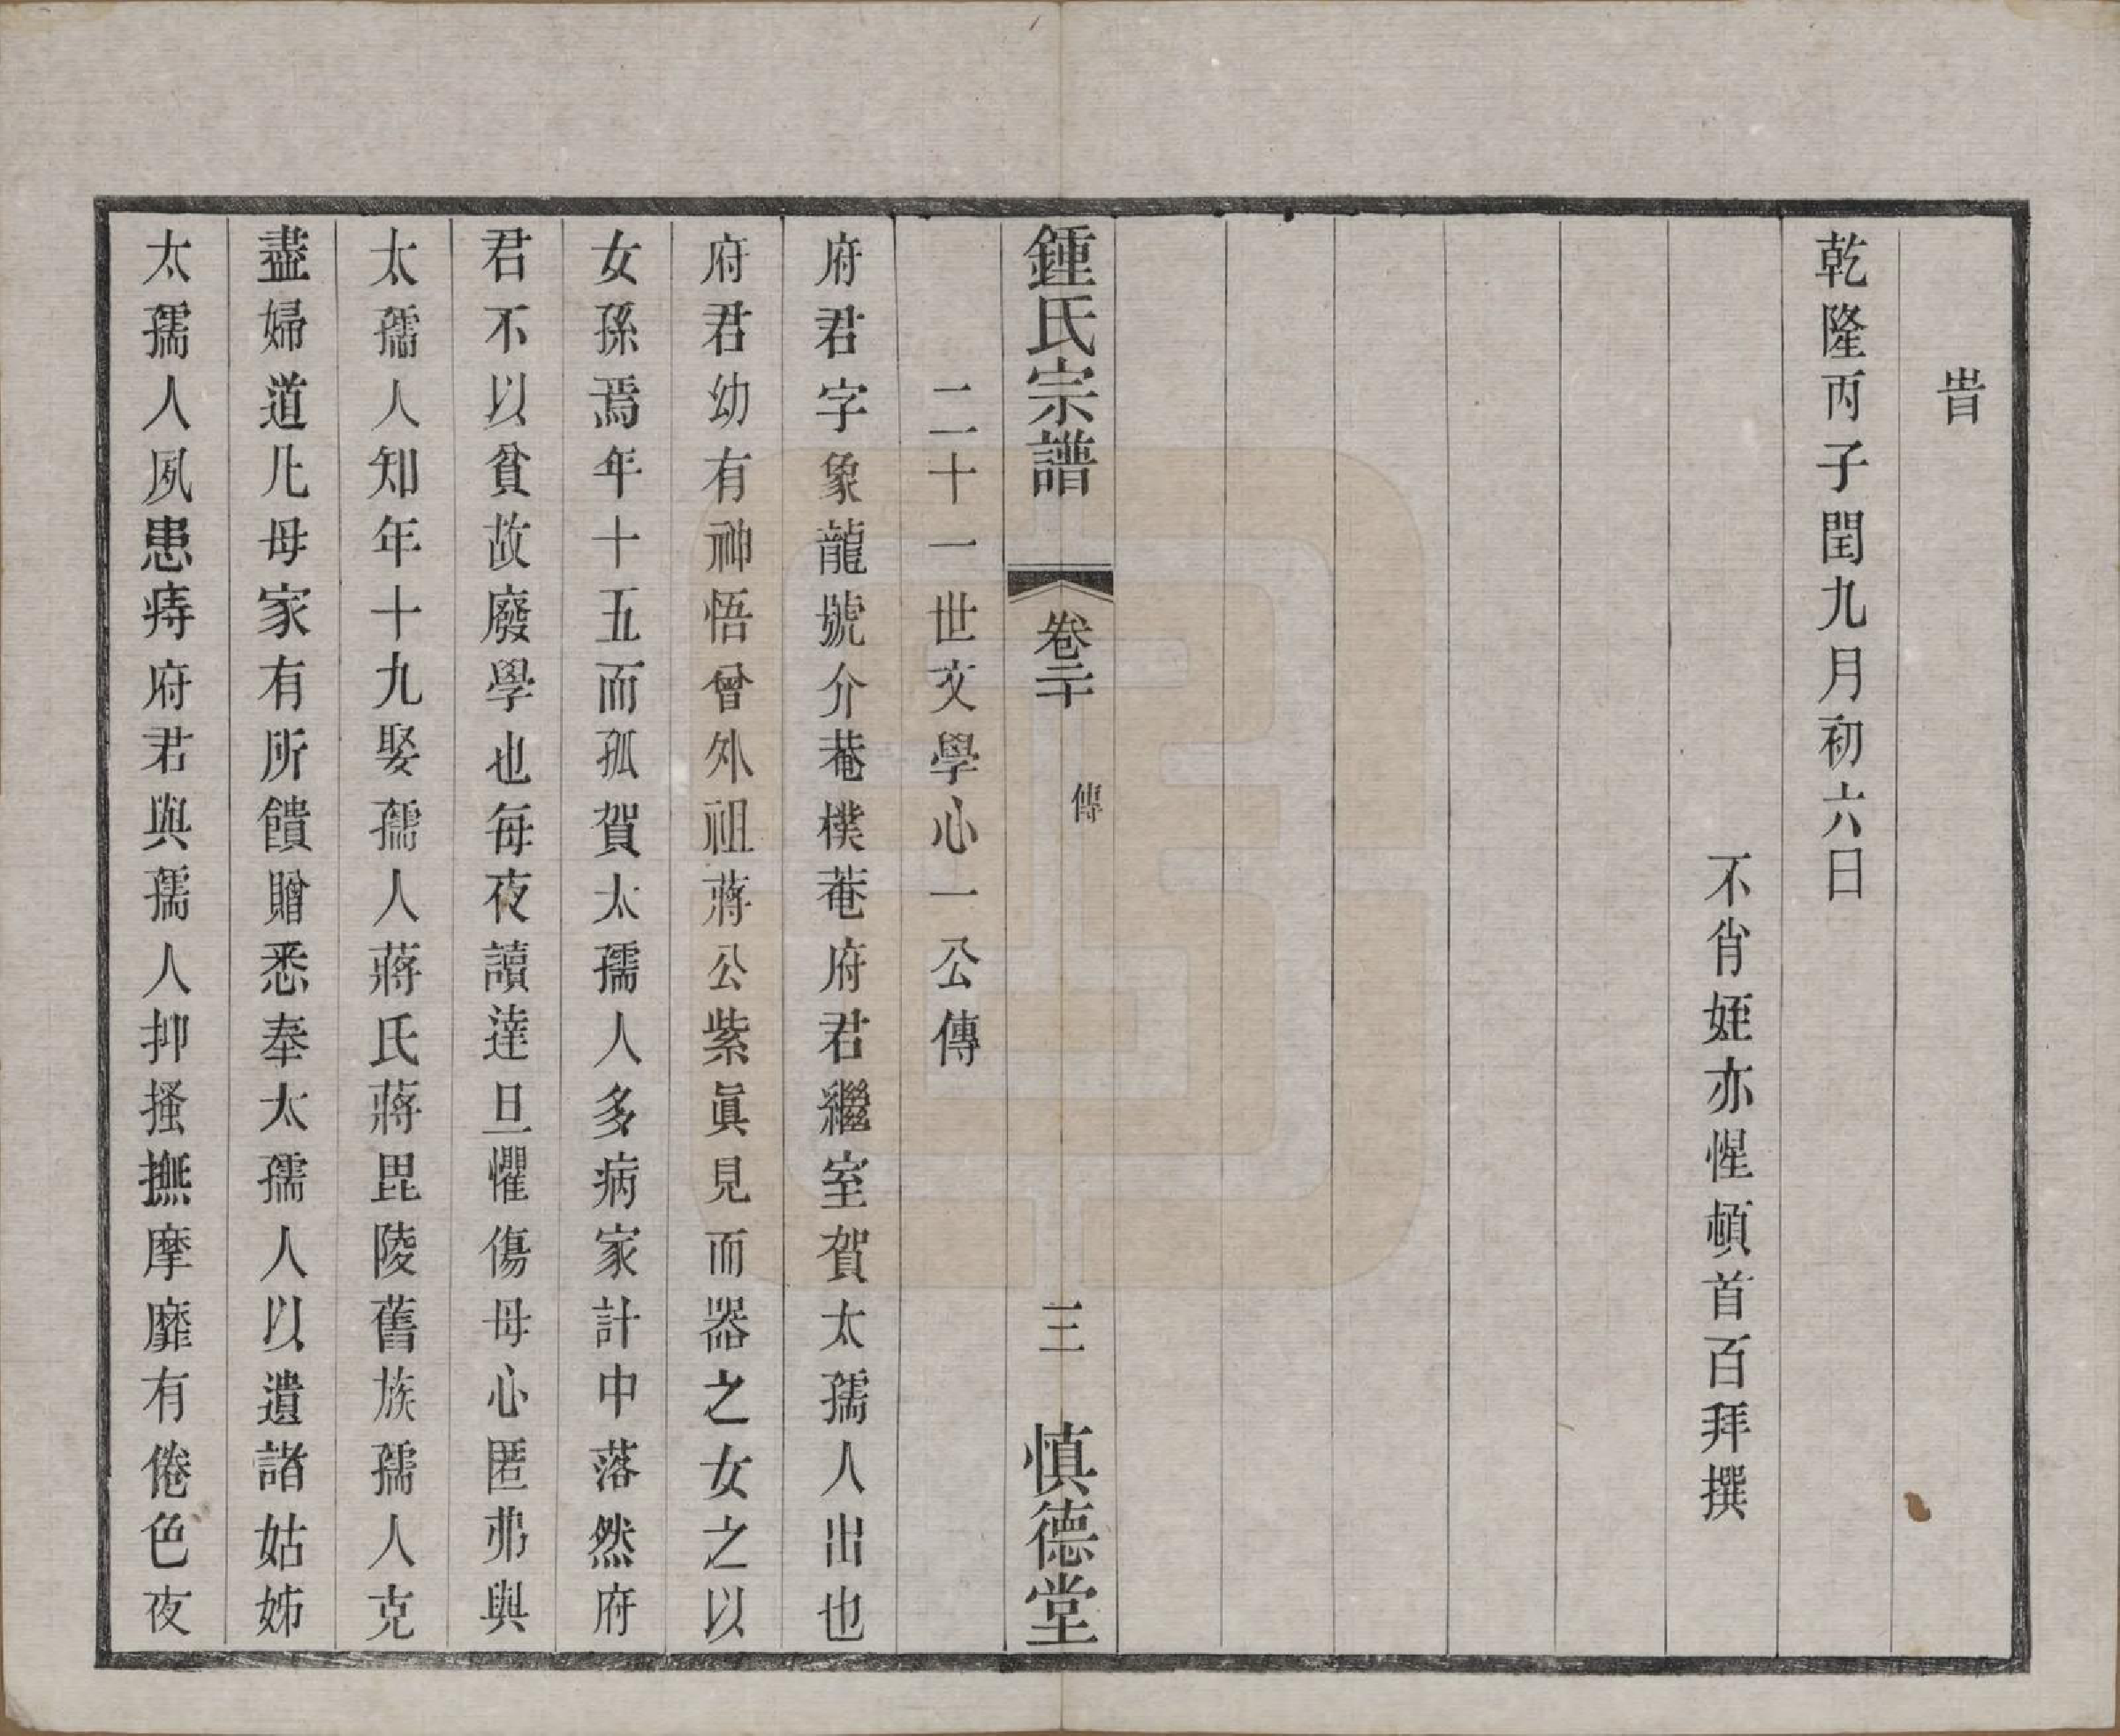 旹
乾隆丙子閏九月初六日
不肖姪亦惺頓首百拜撰
鍾氏宗譜 卷二十 傳 三 慎德堂
二十一世文學心一公傳
府君字象龍號介菴樸菴府君繼室賀太孺人出也
府君幼有神悟曾外祖蔣公紫眞見而器之女之以
女孫焉年十五而孤賀太孺人多病家計中落然府
君不以貧故廢學也每夜讀達旦懼傷母心匿弗與
太孺人知年十九娶孺人蔣氏蔣毘陵舊族孺人克
盡婦道凡母家有所饋贈悉奉太孺人以遺諸姑姊
太孺人夙患痔府君與孺人抑搔撫摩靡有倦色夜